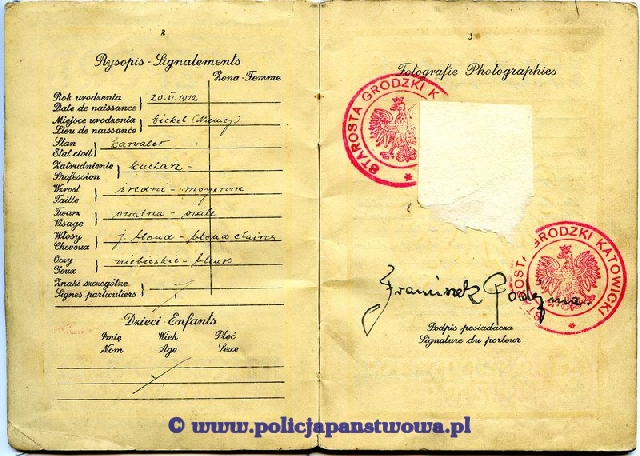 2
Rysopis - Signalements
Żona - Femme
Rok urodzenia
Date de naissance
20.II.1912
Miejsce urodzenia
Lieu de naissance
Bickel (Niemcy)
Stan
Etat civil
kawaler
Zatrudnienie
Profession
Wzrost
Taille
średni - moyenne
Twarz
Visage
owalna - ovale
Włosy
Cheveux
j. blond - blond claire
Oczy
Yeux
niebieskie - bleus
Znaki szczególne
Signes particuliers
Dzieci - Enfants
Imię Wiek Płeć
Nom Age Sexe
3
Fotografie Photographies
STAROSTA GRODZKI K
STAROSTA GRODZKI KATOWICKI
Franciszek
Podpis posiadacza
Signature du porteur
© www.policjapanstwowa.pl